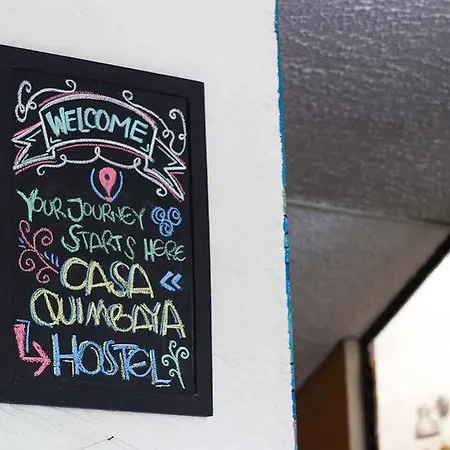 WELCOME
YOUR JOURNEY
STARTS HERE
CASA
QUIMBAYA
HOSTEL